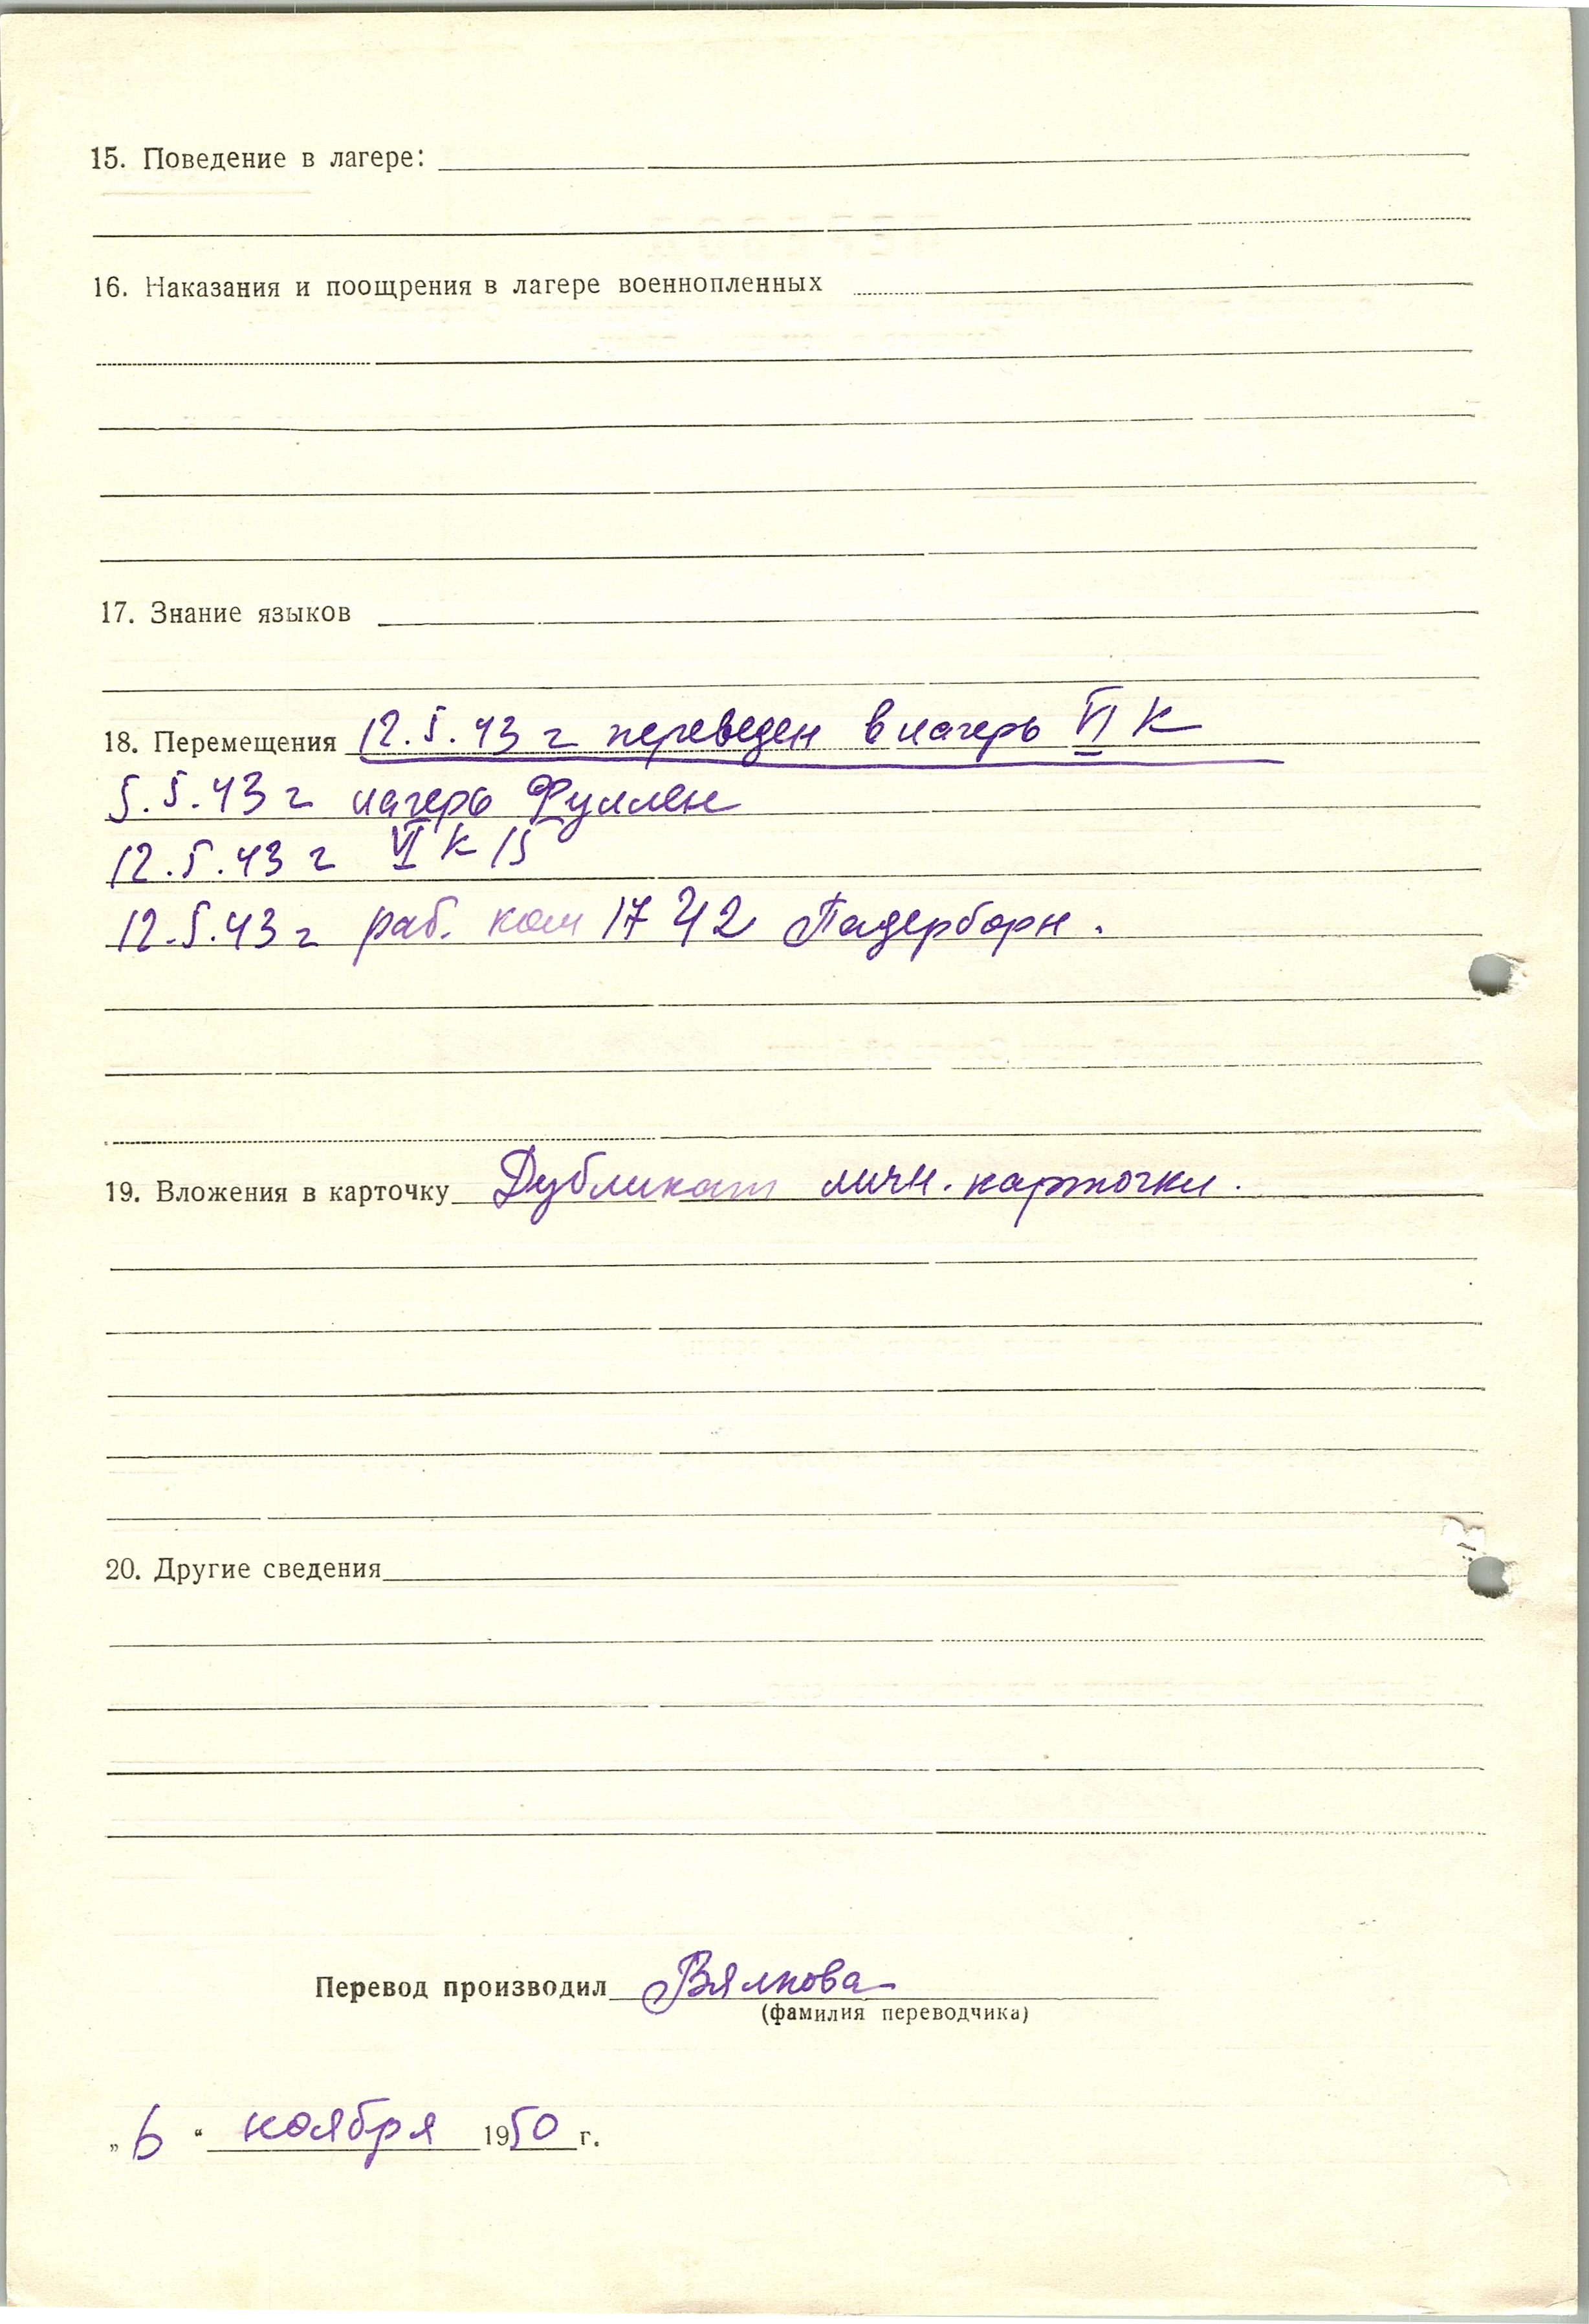 15. Поведение в лагере:
16. Наказания и поощрения в лагере военнопленных
17. Знание языков
18. Перемещения 12.5.43 г переведен в лагерь VI К
5.5.43 г лагерь Фуллен
12.5.43 г VI К 15
12.5.43 г раб. ком 17 42 Падерборн.
19. Вложения в карточку Дубликат личн. карточки.
20. Другие сведения
Перевод производил Вялкова
(фамилия переводчика)
„6“ ноября 1950 г.